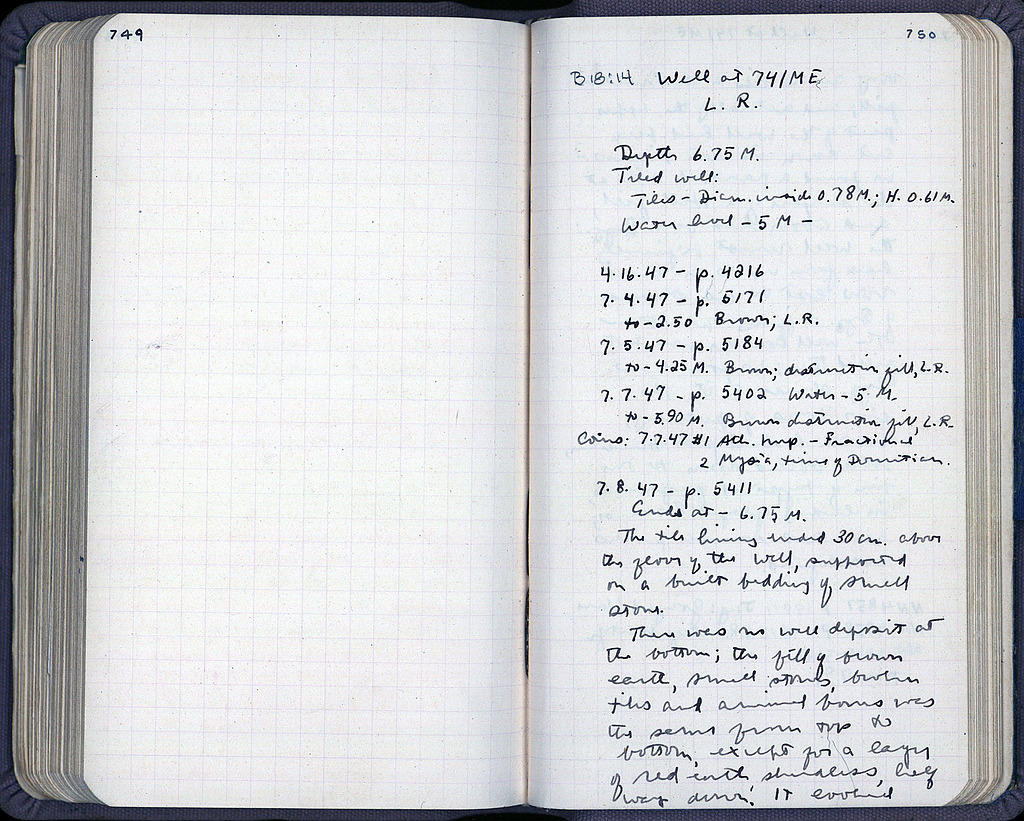 749
750
B 18:14 Well at 74/ME
L. R.
Depth 6.75 M.
Tiled well:
Tiles - Diam. inside 0.78 M.; H. 0.61 M.
Water level - 5 M -
4.16.47 - p. 4216
7.4.47 - p. 5171
to -2.50 Brown; L.R.
7.5.47 - p. 5184
to -4.25 M. Brown; destruction fill, L.R.
7.7.47 - p. 5402 Water - 5 M.
to -5.90 M. Brown destruction fill, L.R.
Coins: 7.7.47 #1 Ath. Imp. - Fractional
2 Mysia, time of Domitian.
7.8.47 - p. 5411
Ends at - 6.75 M.
The tile lining ended 30 cm. above
the floor of the well, supported
on a built bedding of small
stone.
There was no well deposit at
the bottom; the fill of brown
earth, small stones, broken
tiles and animal bones was
the same from top to
bottom, except for a layer
of red earth sherdless, half
way down. It looked